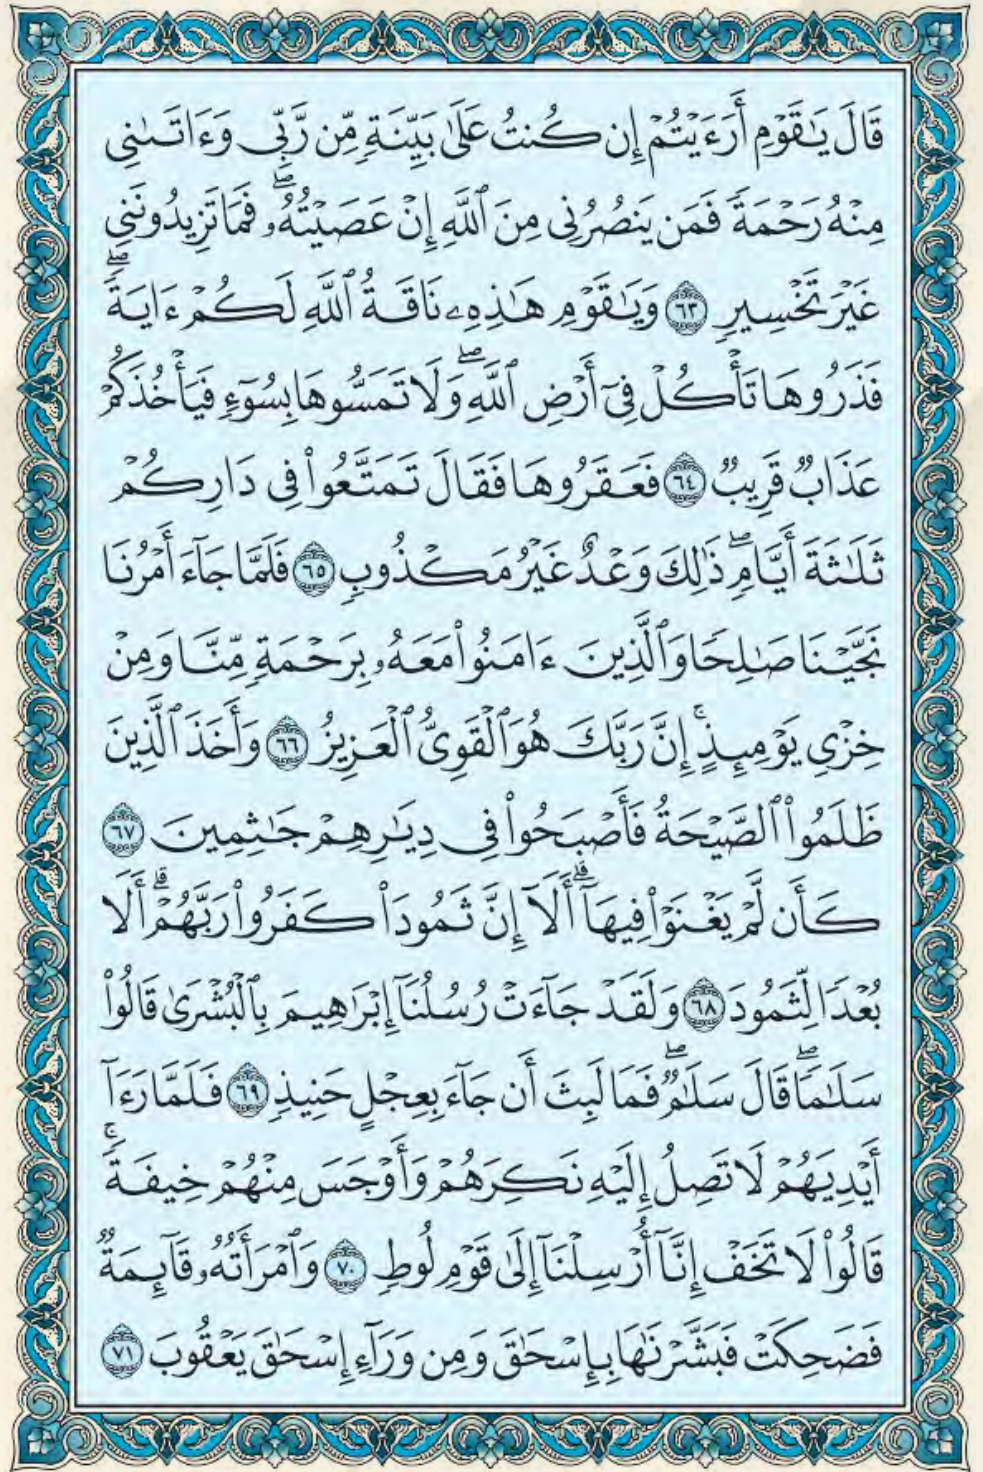 قَالَ يَٰقَوْمِ أَرَءَيْتُمْ إِن كُنتُ عَلَىٰ بَيِّنَةٍ مِّن رَّبِّى وَءَاتَىٰنِى
مِنْهُ رَحْمَةً فَمَن يَنصُرُنِى مِنَ ٱللَّهِ إِنْ عَصَيْتُهُۥ ۖ فَمَا تَزِيدُونَنِى
غَيْرَ تَخْسِيرٍ ٦٣ وَيَٰقَوْمِ هَٰذِهِۦ نَاقَةُ ٱللَّهِ لَكُمْ ءَايَةً ۖ
فَذَرُوهَا تَأْكُلْ فِىٓ أَرْضِ ٱللَّهِ ۖ وَلَا تَمَسُّوهَا بِسُوٓءٍ فَيَأْخُذَكُمْ
عَذَابٌ قَرِيبٌ ٦٤ فَعَقَرُوهَا فَقَالَ تَمَتَّعُوا۟ فِى دَارِكُمْ
ثَلَٰثَةَ أَيَّامٍ ۖ ذَٰلِكَ وَعْدٌ غَيْرُ مَكْذُوبٍ ٦٥ فَلَمَّا جَآءَ أَمْرُنَا
نَجَّيْنَا صَٰلِحًا وَٱلَّذِينَ ءَامَنُوا۟ مَعَهُۥ بِرَحْمَةٍ مِّنَّا وَمِنْ
خِزْىِ يَوْمِئِذٍ ۚ إِنَّ رَبَّكَ هُوَ ٱلْقَوِىُّ ٱلْعَزِيزُ ٦٦ وَأَخَذَ ٱلَّذِينَ
ظَلَمُوا۟ ٱلصَّيْحَةُ فَأَصْبَحُوا۟ فِى دِيَٰرِهِمْ جَٰثِمِينَ ٦٧
كَأَن لَّمْ يَغْنَوْا۟ فِيهَآ ۗ أَلَآ إِنَّ ثَمُودَا۟ كَفَرُوا۟ رَبَّهُمْ ۗ أَلَا
بُعْدًا لِّثَمُودَ ٦٨ وَلَقَدْ جَآءَتْ رُسُلُنَآ إِبْرَٰهِيمَ بِٱلْبُشْرَىٰ قَالُوا۟
سَلَٰمًا ۖ قَالَ سَلَٰمٌ ۖ فَمَا لَبِثَ أَن جَآءَ بِعِجْلٍ حَنِيذٍ ٦٩ فَلَمَّا رَءَآ
أَيْدِيَهُمْ لَا تَصِلُ إِلَيْهِ نَكِرَهُمْ وَأَوْجَسَ مِنْهُمْ خِيفَةً ۚ
قَالُوا۟ لَا تَخَفْ إِنَّآ أُرْسِلْنَآ إِلَىٰ قَوْمِ لُوطٍ ٧٠ وَٱمْرَأَتُهُۥ قَآئِمَةٌ
فَضَحِكَتْ فَبَشَّرْنَٰهَا بِإِسْحَٰقَ وَمِن وَرَآءِ إِسْحَٰقَ يَعْقُوبَ ٧١